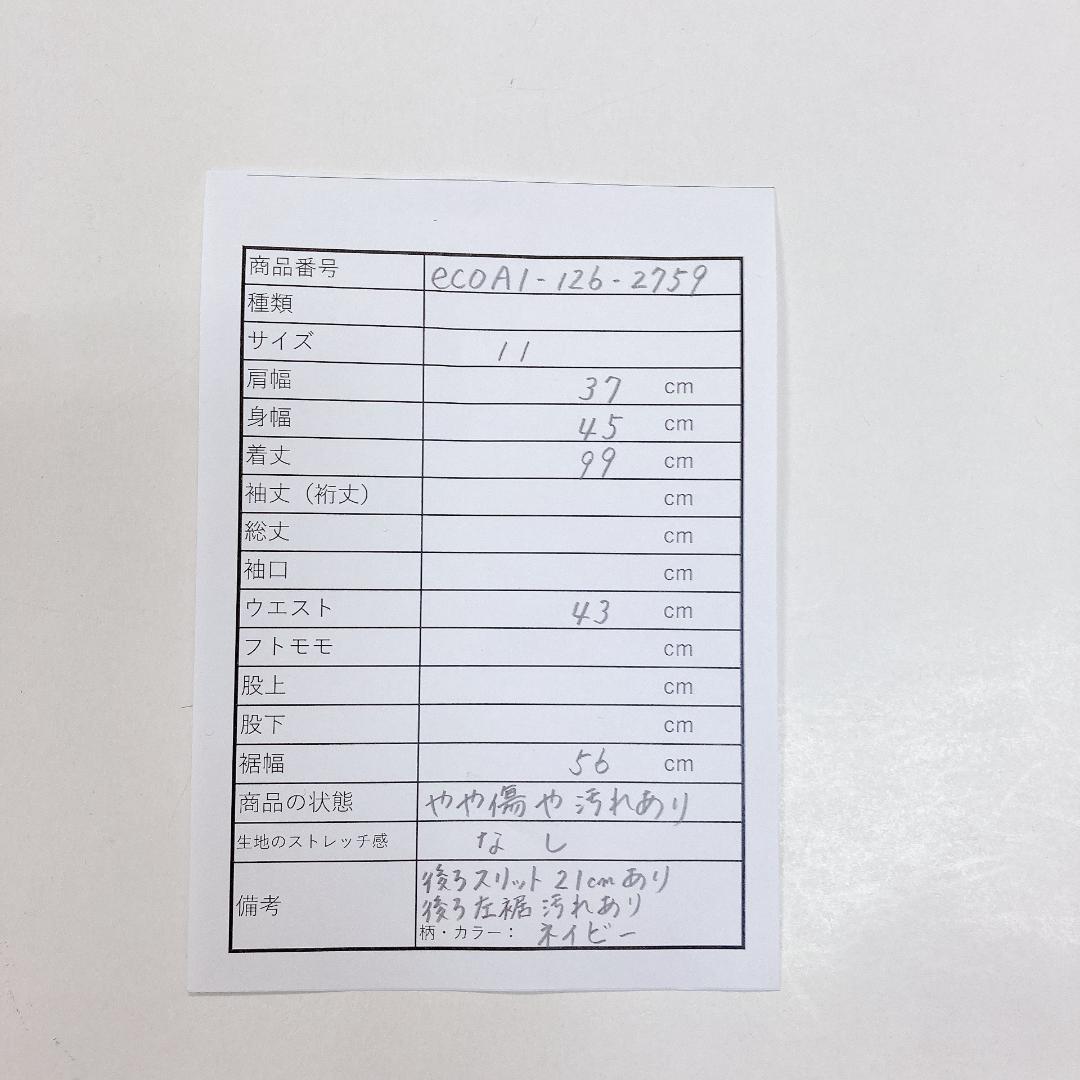 商品番号 ecoA1-126-2759
種類
サイズ 11
肩幅 37 cm
身幅 45 cm
着丈 99 cm
袖丈（裄丈） cm
総丈 cm
袖口 cm
ウエスト 43 cm
フトモモ cm
股上 cm
股下 cm
裾幅 56 cm
商品の状態 やや傷や汚れあり
生地のストレッチ感 なし
備考 後ろスリット 21cmあり
後ろ左裾汚れあり
柄・カラー： ネイビー